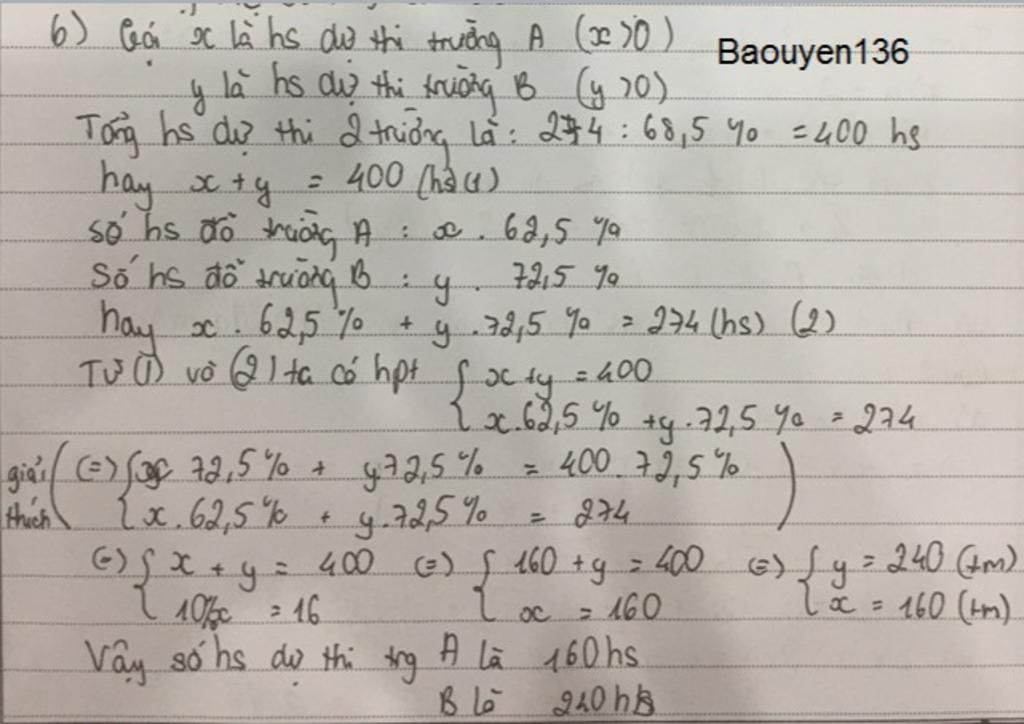 6) Gọi x là hs dự thi trường A (x>0)
Baouyen136
y là hs dự thi trường B (y>0)
Tổng hs dự thi 2 trường là: 274 : 68,5 % = 400 hs
hay x + y = 400 (hs) (1)
số hs đỗ trường A : x . 62,5 %
Số hs đỗ trường B : y . 72,5 %
hay x . 62,5 % + y . 72,5 % = 274 (hs) (2)
Từ (1) và (2) ta có hpt { x + y = 400
x . 62,5 % + y . 72,5 % = 274
giải thích ( (=) { x 72,5 % + y 72,5 % = 400 . 72,5 % )
x . 62,5 % + y . 72,5 % = 274
(=) { x + y = 400 (=) { 160 + y = 400 (=) { y = 240 (tm)
10%x = 16 x = 160 x = 160 (tm)
Vậy số hs dự thi trg A là 160 hs
B là 240 hs